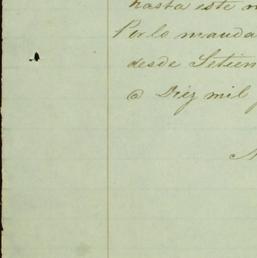 hasta este
Por lo manda
desde Setiem
@ Diez mil